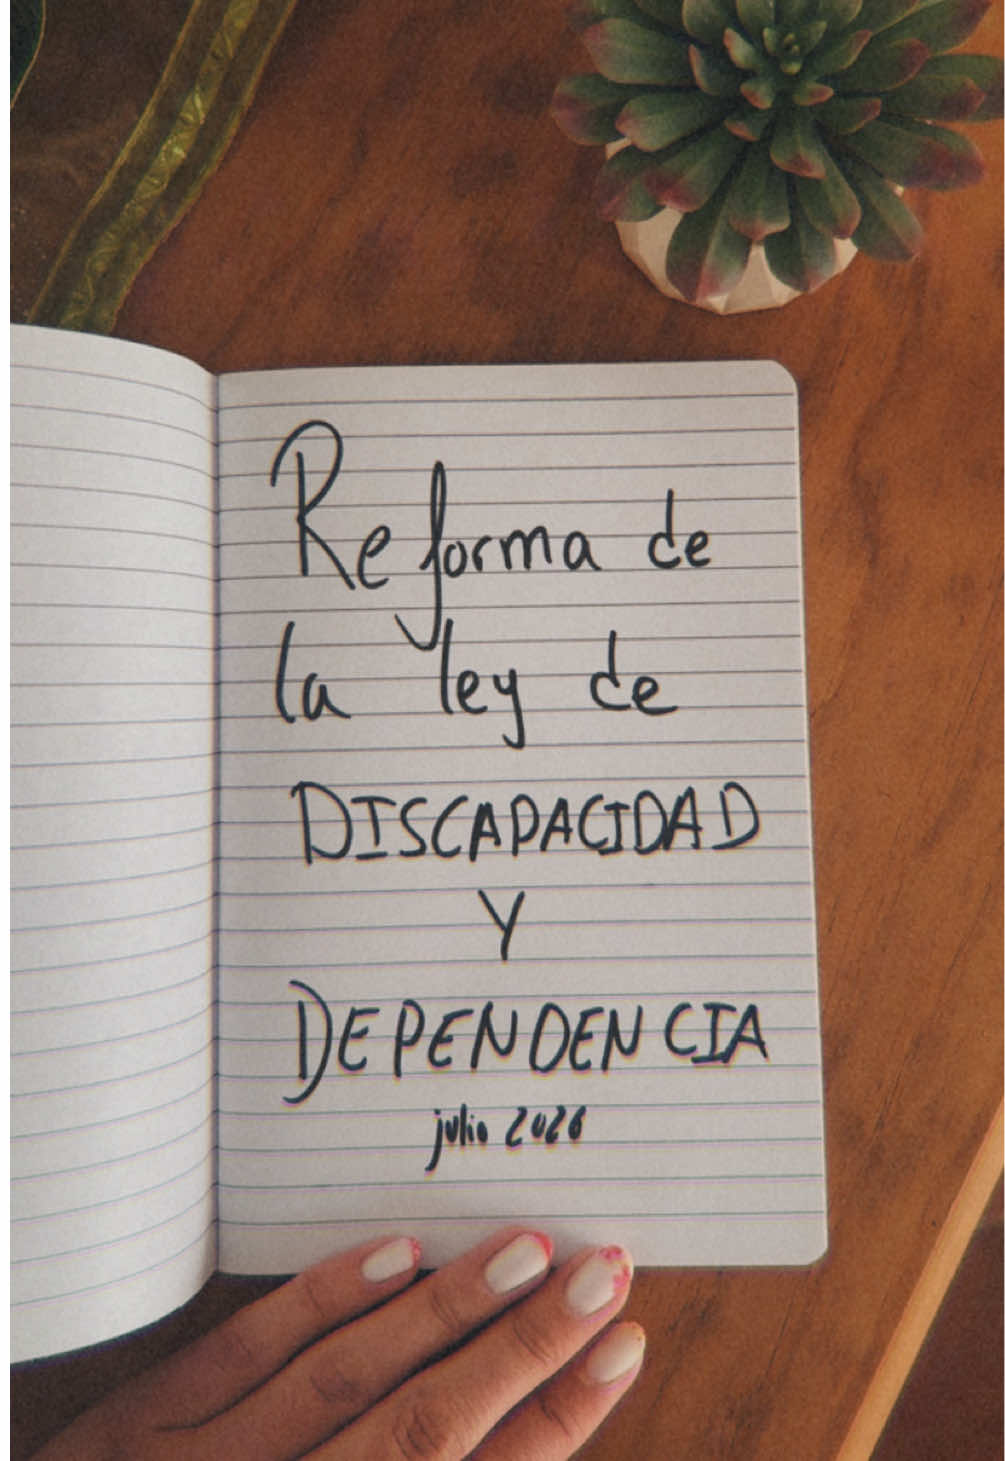 Reforma de
la ley de
DISCAPACIDAD
Y
DEPENDENCIA
julio 2026